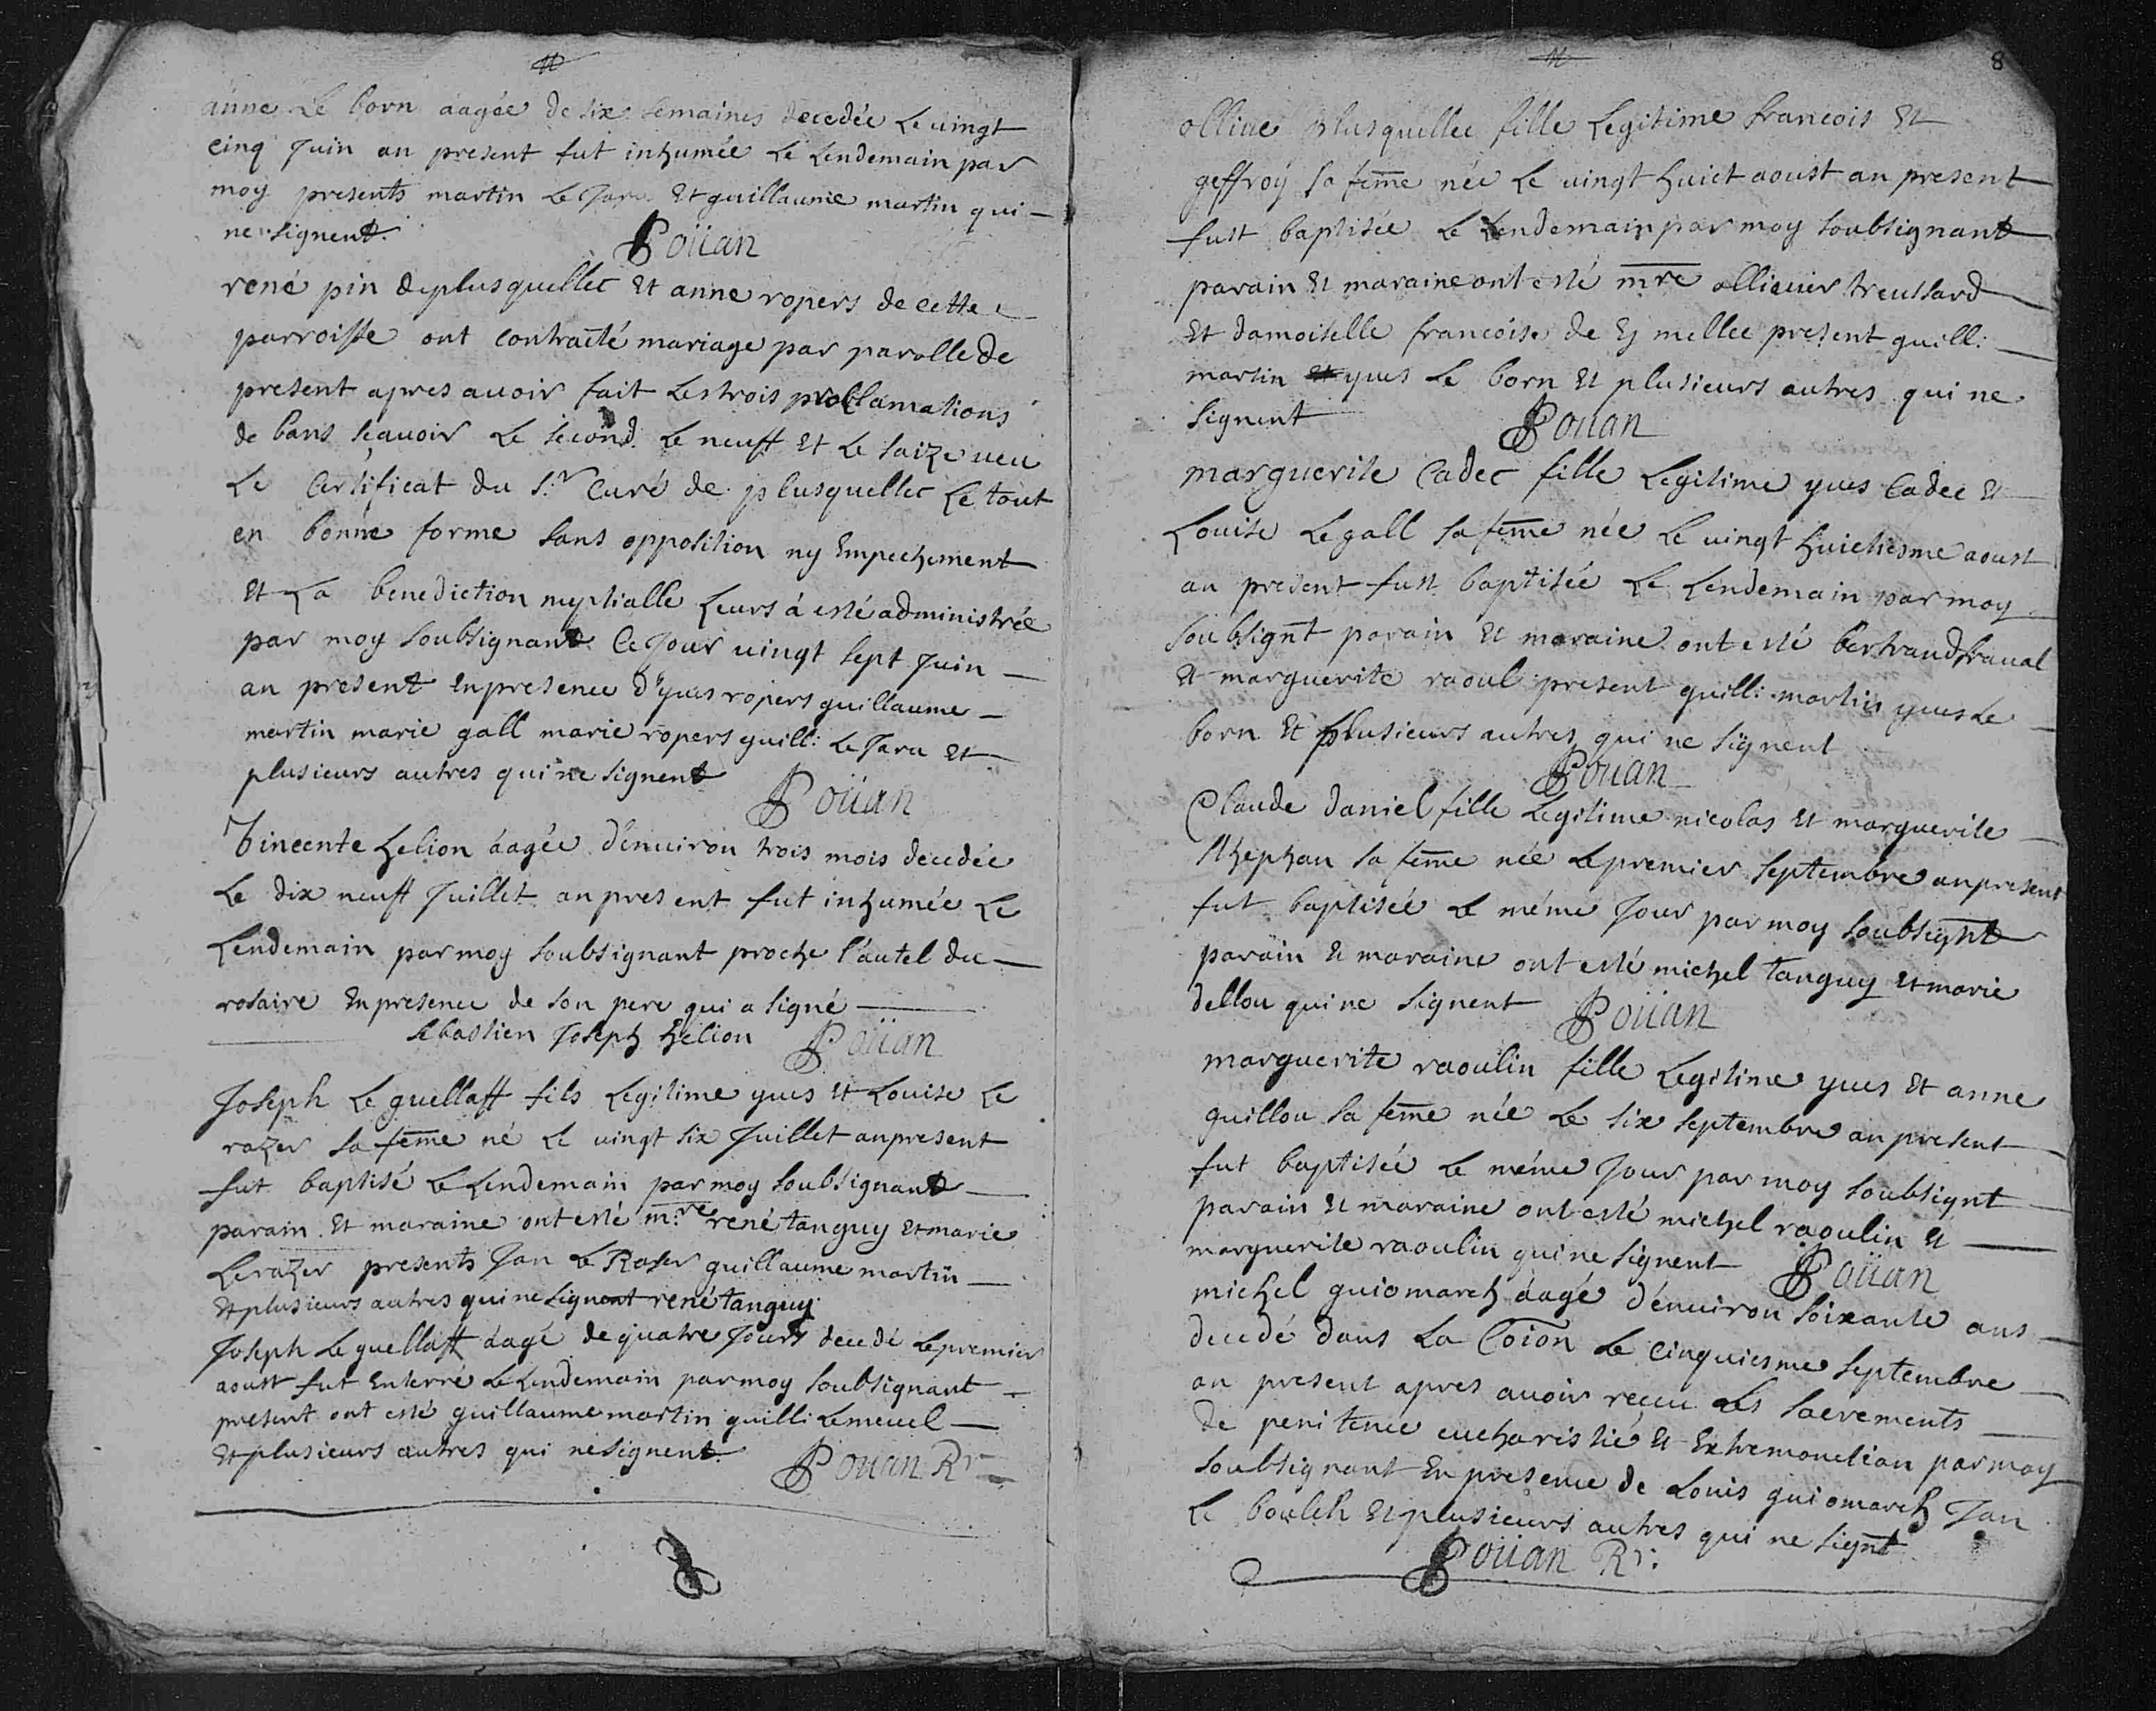 anne Le born aagée de six semaines decedée Le vingt
cinq Juin an present fut inhumée Le Lendemain par
moy presents martin Le Jara Et guillaume martin qui
ne signent.
Poüan
rené pin de plusquellec Et anne ropers de cette
parroisse ont contracté mariage par parolle de
present apres auoir fait Les trois proclamations
de bans sçauoir Le second Le neuff Et Le saize ueu
Le Certificat du S.r Curé de plusquellec Le tout
en bonne forme sans opposition ny Empechement
Et La benediction nuptialle Leurs á esté administrée
par moy soubsignant Ce Jour uingt sept Juin
an present En presence d'yues ropers guillaume
martin marie gall marie ropers guill: Le Jara Et
plusieurs autres qui ne signent
Poüan
Vincente helion áagée d'enuiron trois mois decedée
Le dix neuff Juillet an present fut inhumée Le
Lendemain par moy soubsignant proche l'autel du
rosaire En presence de son pere qui a signé
sebastien Joseph hélion Poüan
Joseph Le guellaff fils Legitime yues Et Louise Le
razer sa feme né Le uingt six Juillet an present
fut baptisé Le Lendemain par moy soubsignant
parain Et maraine ont esté m:re rené tanguy Et marie
Le razer presents Jan Le Raser guillaume martin
Et plusieurs autres qui ne signent rené tanguy
Joseph Le guellaff áagé de quatre Jours decedé Le premier
aoust fut Enterré Le Lendemain par moy soubsignant
present ont esté guillaume martin guill: Le meuel
Et plusieurs autres qui ne signent
Pouan Rr
8
olliue plusquellec fille Legitime francois Et
geffroy sa feme née Le uingt huict aoust an present
fust baptisée Le Lendemain par moy soubsignant
parain Et maraine ont esté mre olliuier treussard
Et damoiselle francoise de mellec present guill:
martin yues Le born Et plusieurs autres qui ne
signent
Pouan
marguerite Cadec fille Legitime yues Cadec Et
Louise Le gall sa feme née Le uingt huictiesme aoust
an present fust baptisée Le Lendemain par moy
soubsignt parain Et maraine ont esté bertrand fraual
Et marguerite raoul present guill: martin yues Le
born Et plusieurs autres qui ne signent
Pouan
Claude daniel fille Legitime nicolas Et marguerite
sthephan sa feme née Le premier septembre an present
fut baptisée Le méme Jour par moy soubsignt
parain Et maraine ont esté michel tanguy Et marie
dellou qui ne signent Poüan
marguerite raoulin fille Legitime yues Et anne
guillou sa feme née Le six septembre an present
fut baptisée Le méme Jour par moy soubsignt
parain Et maraine ont esté michel raoulin Et
marguerite raoulin qui ne signent Poüan
michel guiomarch áagé d'enuiron soixante ans
decedé dans La Coion Le cinquiesme septembre
an present apres auoir receu Les sacrements
de penitence eucharistie Et Extremonction par moy
soubsignant En presence de Louis guiomarch Jan
Le boulch Et plusieurs autres qui ne signt
Poüan Rr: